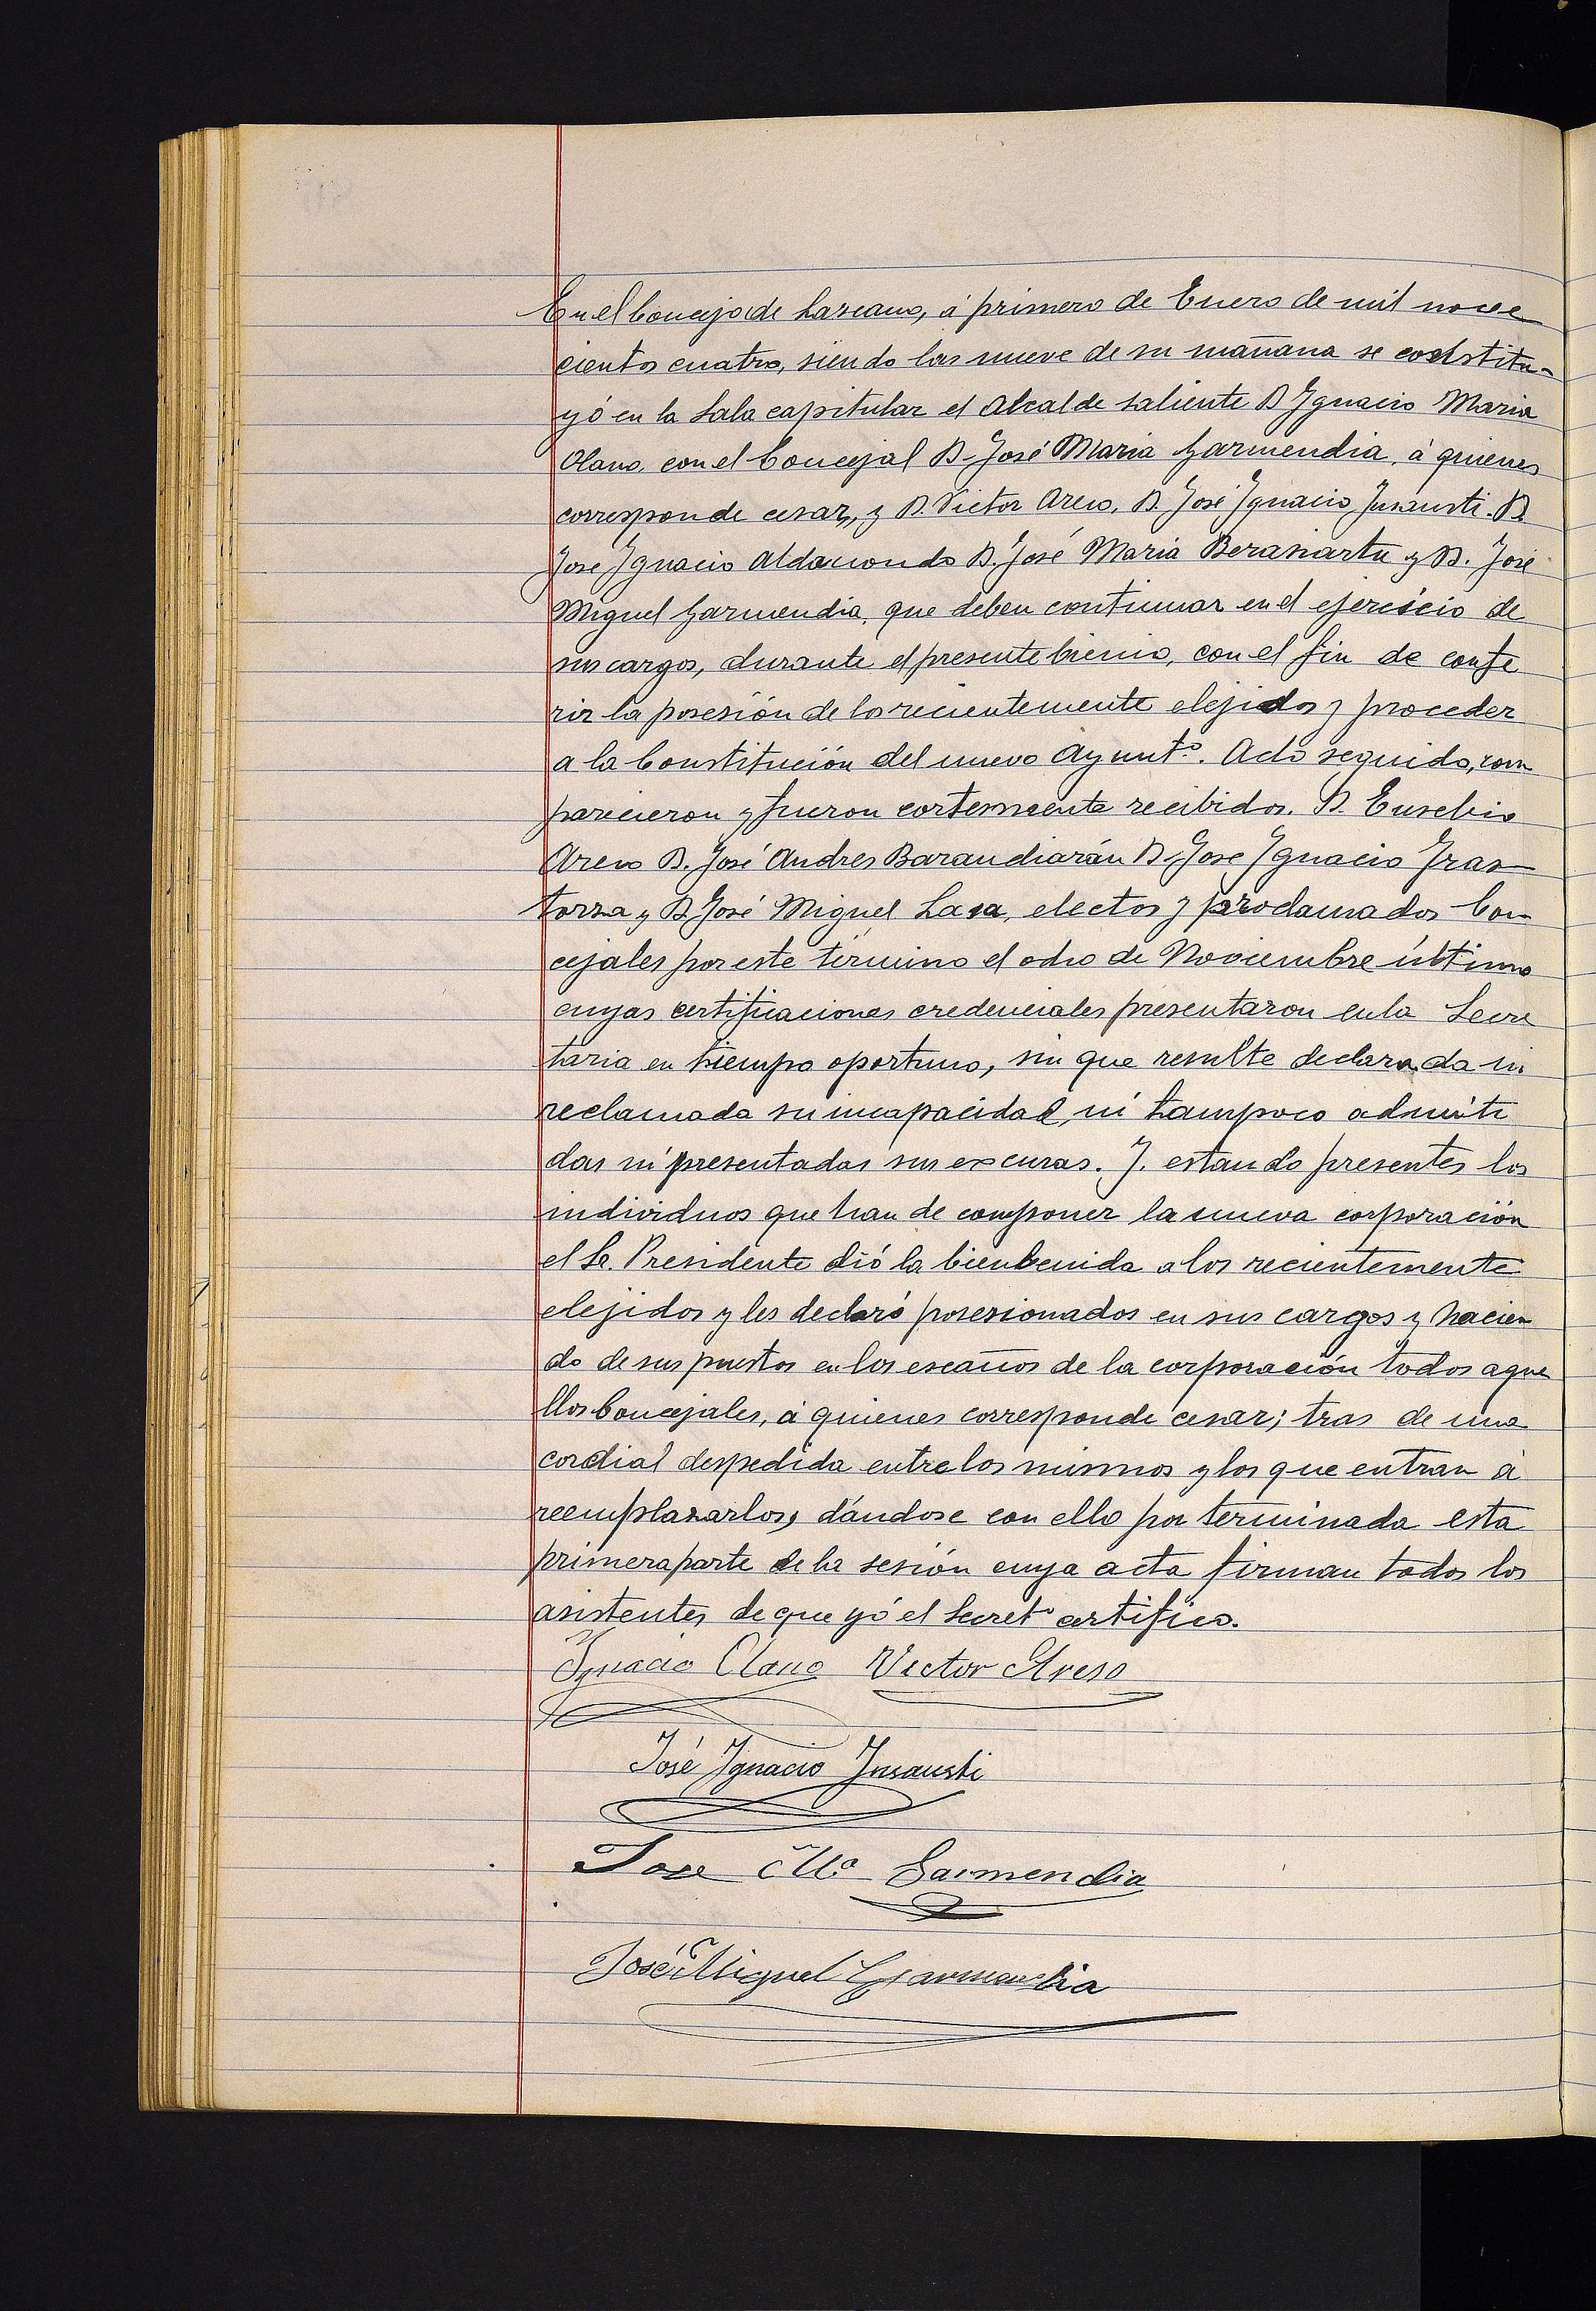 En el Concejo de Lazcano, á primero de Enero de mil nove
cientos cuatro, siendo las nueve de su mañana se constitu-
yó en la Sala capitular el Alcalde saliente D Ygnacio Maria
Olano, con el Concejal D. José Maria Garmendia, á quienes
corresponde cesar, y D. Victor Areso, D. José Ygnacio Ynsausti. D.
José Ygnacio Aldasoro D. José Maria Berasiartu y D. José
Miguel Garmendia, que deben continuar en el ejercicio de
sus cargos, durante el presente bienio, con el fin de confe
rir la posesión de los recientemente elejidos y proceder
a la Constitución del nuevo Ayuntº. Acto seguido, com
parecieron y fueron cortesmente recibidos. D. Eusebio
Areso D. José Andres Barandiarán D. Jose Ygnacio Yras
torza y D José Miguel Lasa, electos y proclamados Con
cejales por este término el ocho de Noviembre último
cuyas certificaciones credenciales presentaron en la Secre
taria en tiempo oportuno, sin que resulte declarada ni
reclamada su incapacidad, ni tampoco admiti
das ni presentadas sus excusas. Y. estando presentes los
individuos que han de componer la nueva corporación
el Sr. Presidente dió la bienbenida a los recientemente
elejidos y les declaró posesionados en sus cargos y hacien
do de sus puestos en los escaños de la corporación todos aque
llos Concejales, á quienes corresponde cesar; tras de una
cordial despedida entre los mismos y los que entran á
reemplazarlos, dándose con ello por terminada esta
primera parte de la sesión cuya acta firman todos los
asistentes, de que yó el Secretº certifico.
Ygnacio Olano Victor Areso
José Ygnacio Ynsausti
Jose Mª Garmendia
José Miguel Garmendia